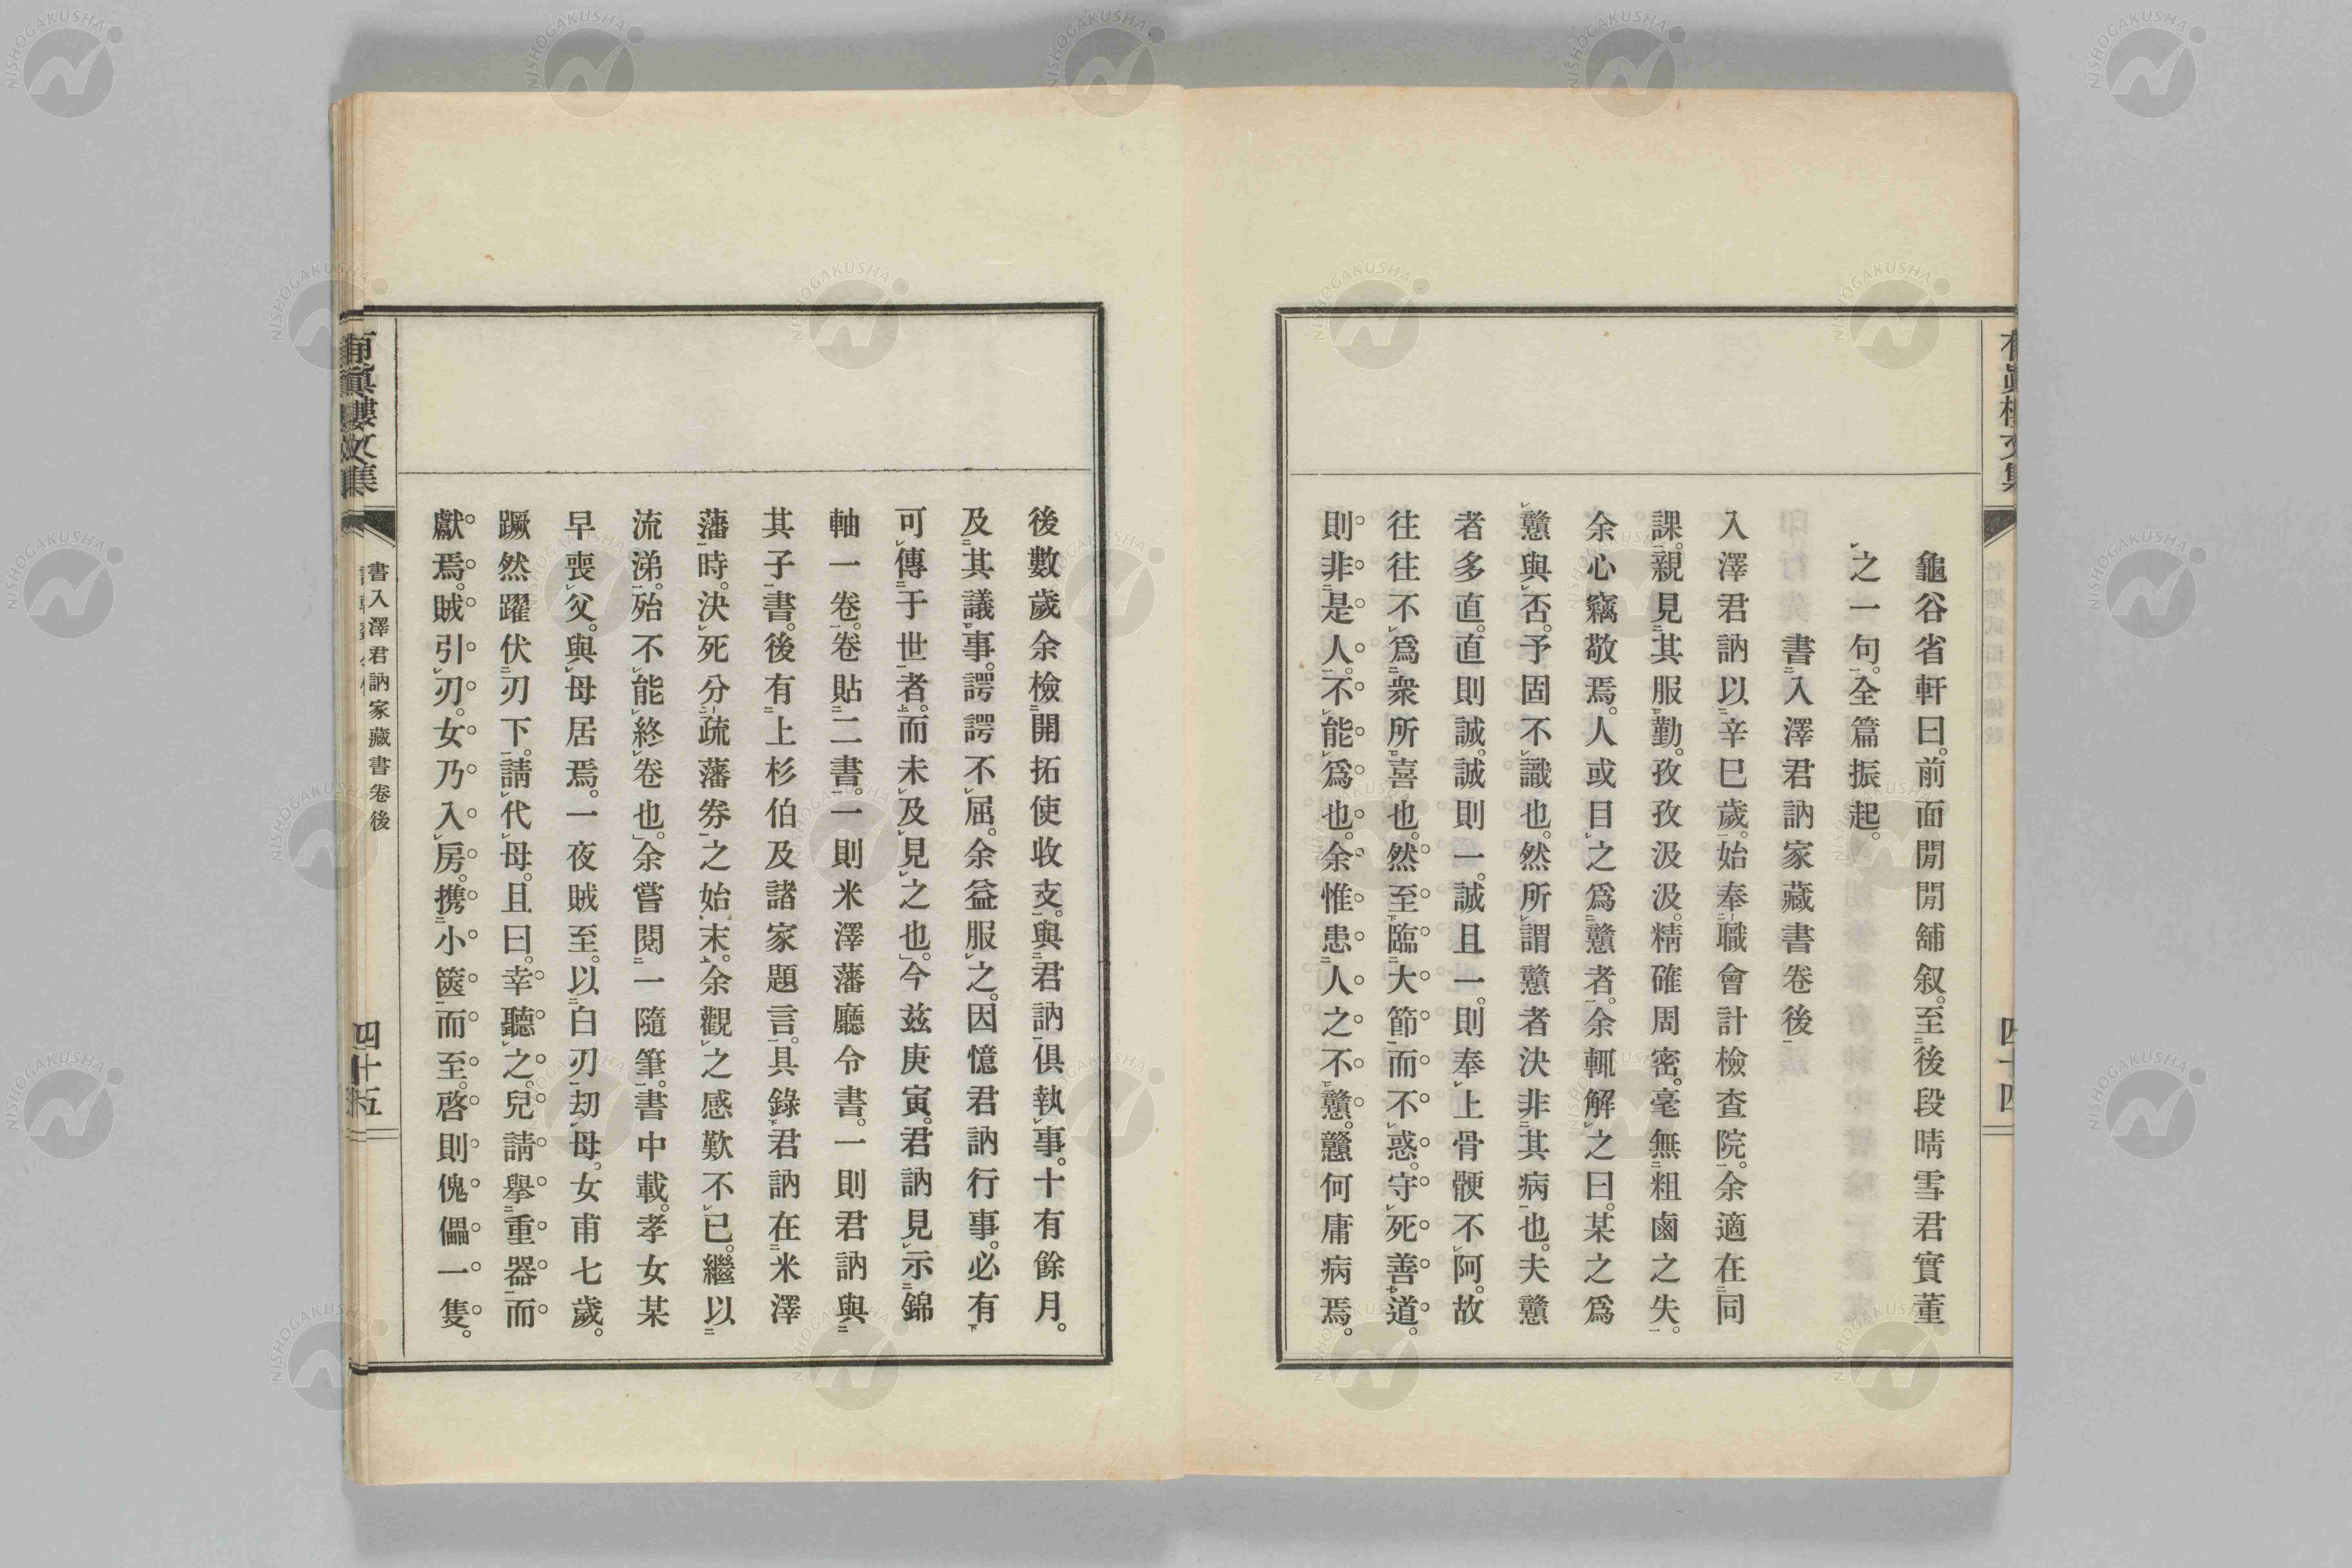 龜谷省軒曰。前面閒閒舖叙。至後段晴雪君實董
之一句。全篇振起。
書入澤君訥家藏書卷後
入澤君訥以辛巳歲。始奉職會計檢査院。余適在同
課。親見其服勤。孜孜汲汲。精確周密。毫無粗鹵之失。
余心竊敬焉。人或目之爲戇者。余輒解之曰。某之爲
戇與否。予固不識也。然所謂戇者決非其病也。夫戇
者多直。直則誠。誠則一。誠且一。則奉上骨骾不阿。故
往往不爲衆所喜也。然至臨大節而不惑。守死善道。
則非是人。不能爲也。余惟患人之不戇。戇何庸病焉。
四十四
後數歲余檢開拓使收支。與君訥俱執事。十有餘月。
及其議事。諤諤不屈。余益服之。因憶君訥行事。必有
可傳于世者。而未及見之也。今玆庚寅。君訥見示錦
軸一卷。卷貼二書。一則米澤藩廳令書。一則君訥與
其子書。後有上杉伯及諸家題言。具錄君訥在米澤
藩時。決死分疏藩券之始末。余觀之感歎不已。繼以
流涕。殆不能終卷也。余嘗閱一隨筆。書中載。孝女某
早喪父。與母居焉。一夜賊至。以白刃劫母。女甫七歲。
蹶然躍伏刃下。請代母。且曰。幸聽之。兒請擧重器而
獻焉。賊引刃。女乃入房。携小篋而至。啓則傀儡一隻。
書入澤君訥家藏書卷後
四十五